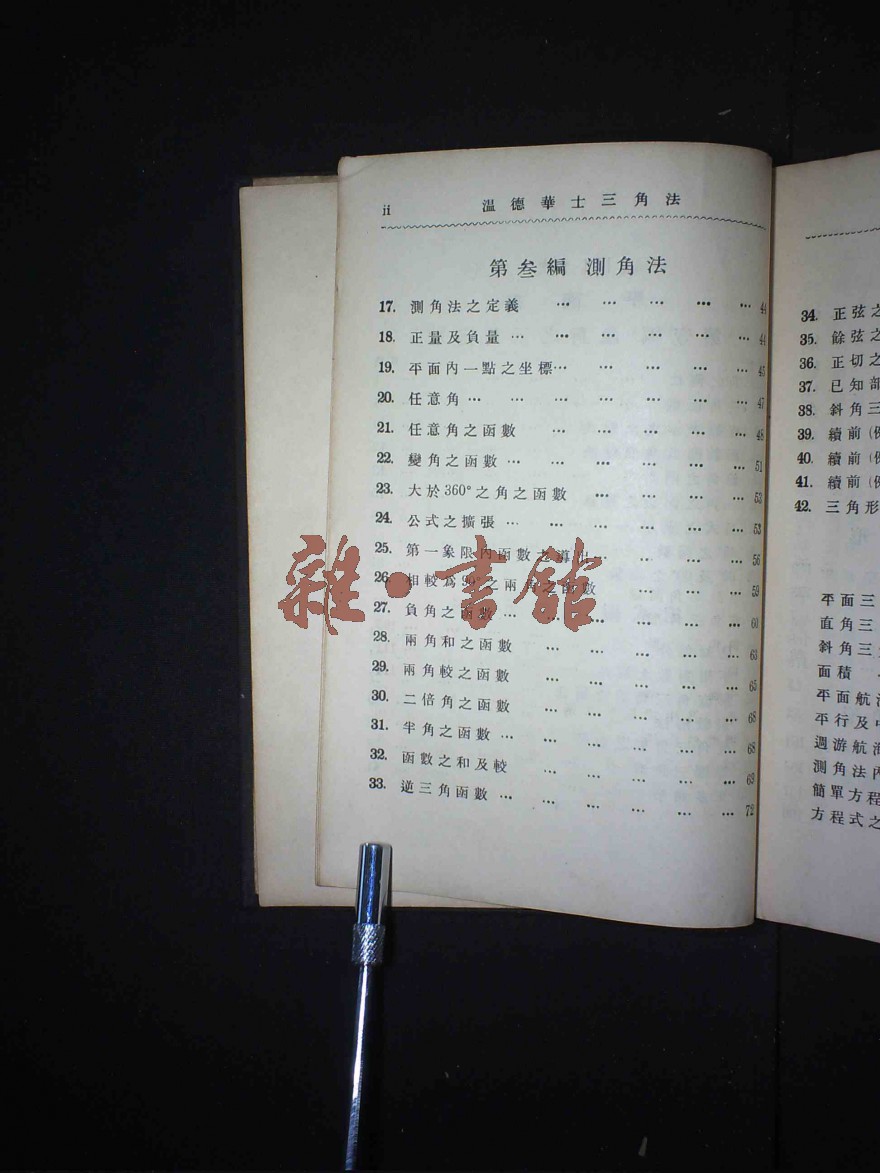 ii 溫德華士三角法
第叁編 測角法
17. 測角法之定義 … … … … … 44
18. 正量及負量 … … … … … … 44
19. 平面內一點之坐標 … … … … … 45
20. 任意角 … … … … … … … 47
21. 任意角之函數 … … … … … 48
22. 變角之函數 … … … … … … 51
23. 大於360°之角之函數 … … … … 52
24. 公式之擴張 … … … … … … 53
25. 第一象限內函數之導出 … … … … 56
26. 相較爲90°之兩角之函數 … … … 59
27. 負角之函數 … … … … … …
28. 兩角和之函數 … … … … … 63
29. 兩角較之函數 … … … … … 65
30. 二倍角之函數 … … … … … 68
31. 半角之函數 … … … … … … 68
32. 函數之和及較 … … … … … 69
33. 逆三角函數 … … … … … … 72
34. 正弦之
35. 餘弦之
36. 正切之
37. 已知部
38. 斜角三
39. 續前
40. 續前
41. 續前
42. 三角形
平面三
直角三
斜角三
面積
平面航
平行及
週游航海
測角法
簡單方程
方程式之
雜·書館